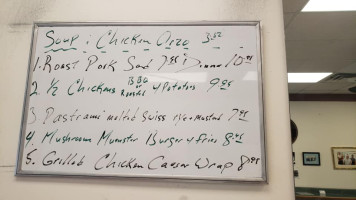 Soup: Chicken Orzo 3.50
1. Roast Pork Sand 7.95 Dinner 10.95
2. 1/2 Chickens BBQ Roasted w Potatoes 9.95
3. Pastrami melt w/ Swiss rye + mustard 7.95
4. Mushroom Munster Burger w fries 8.95
5. Grilled Chicken Caesar Wrap 8.95